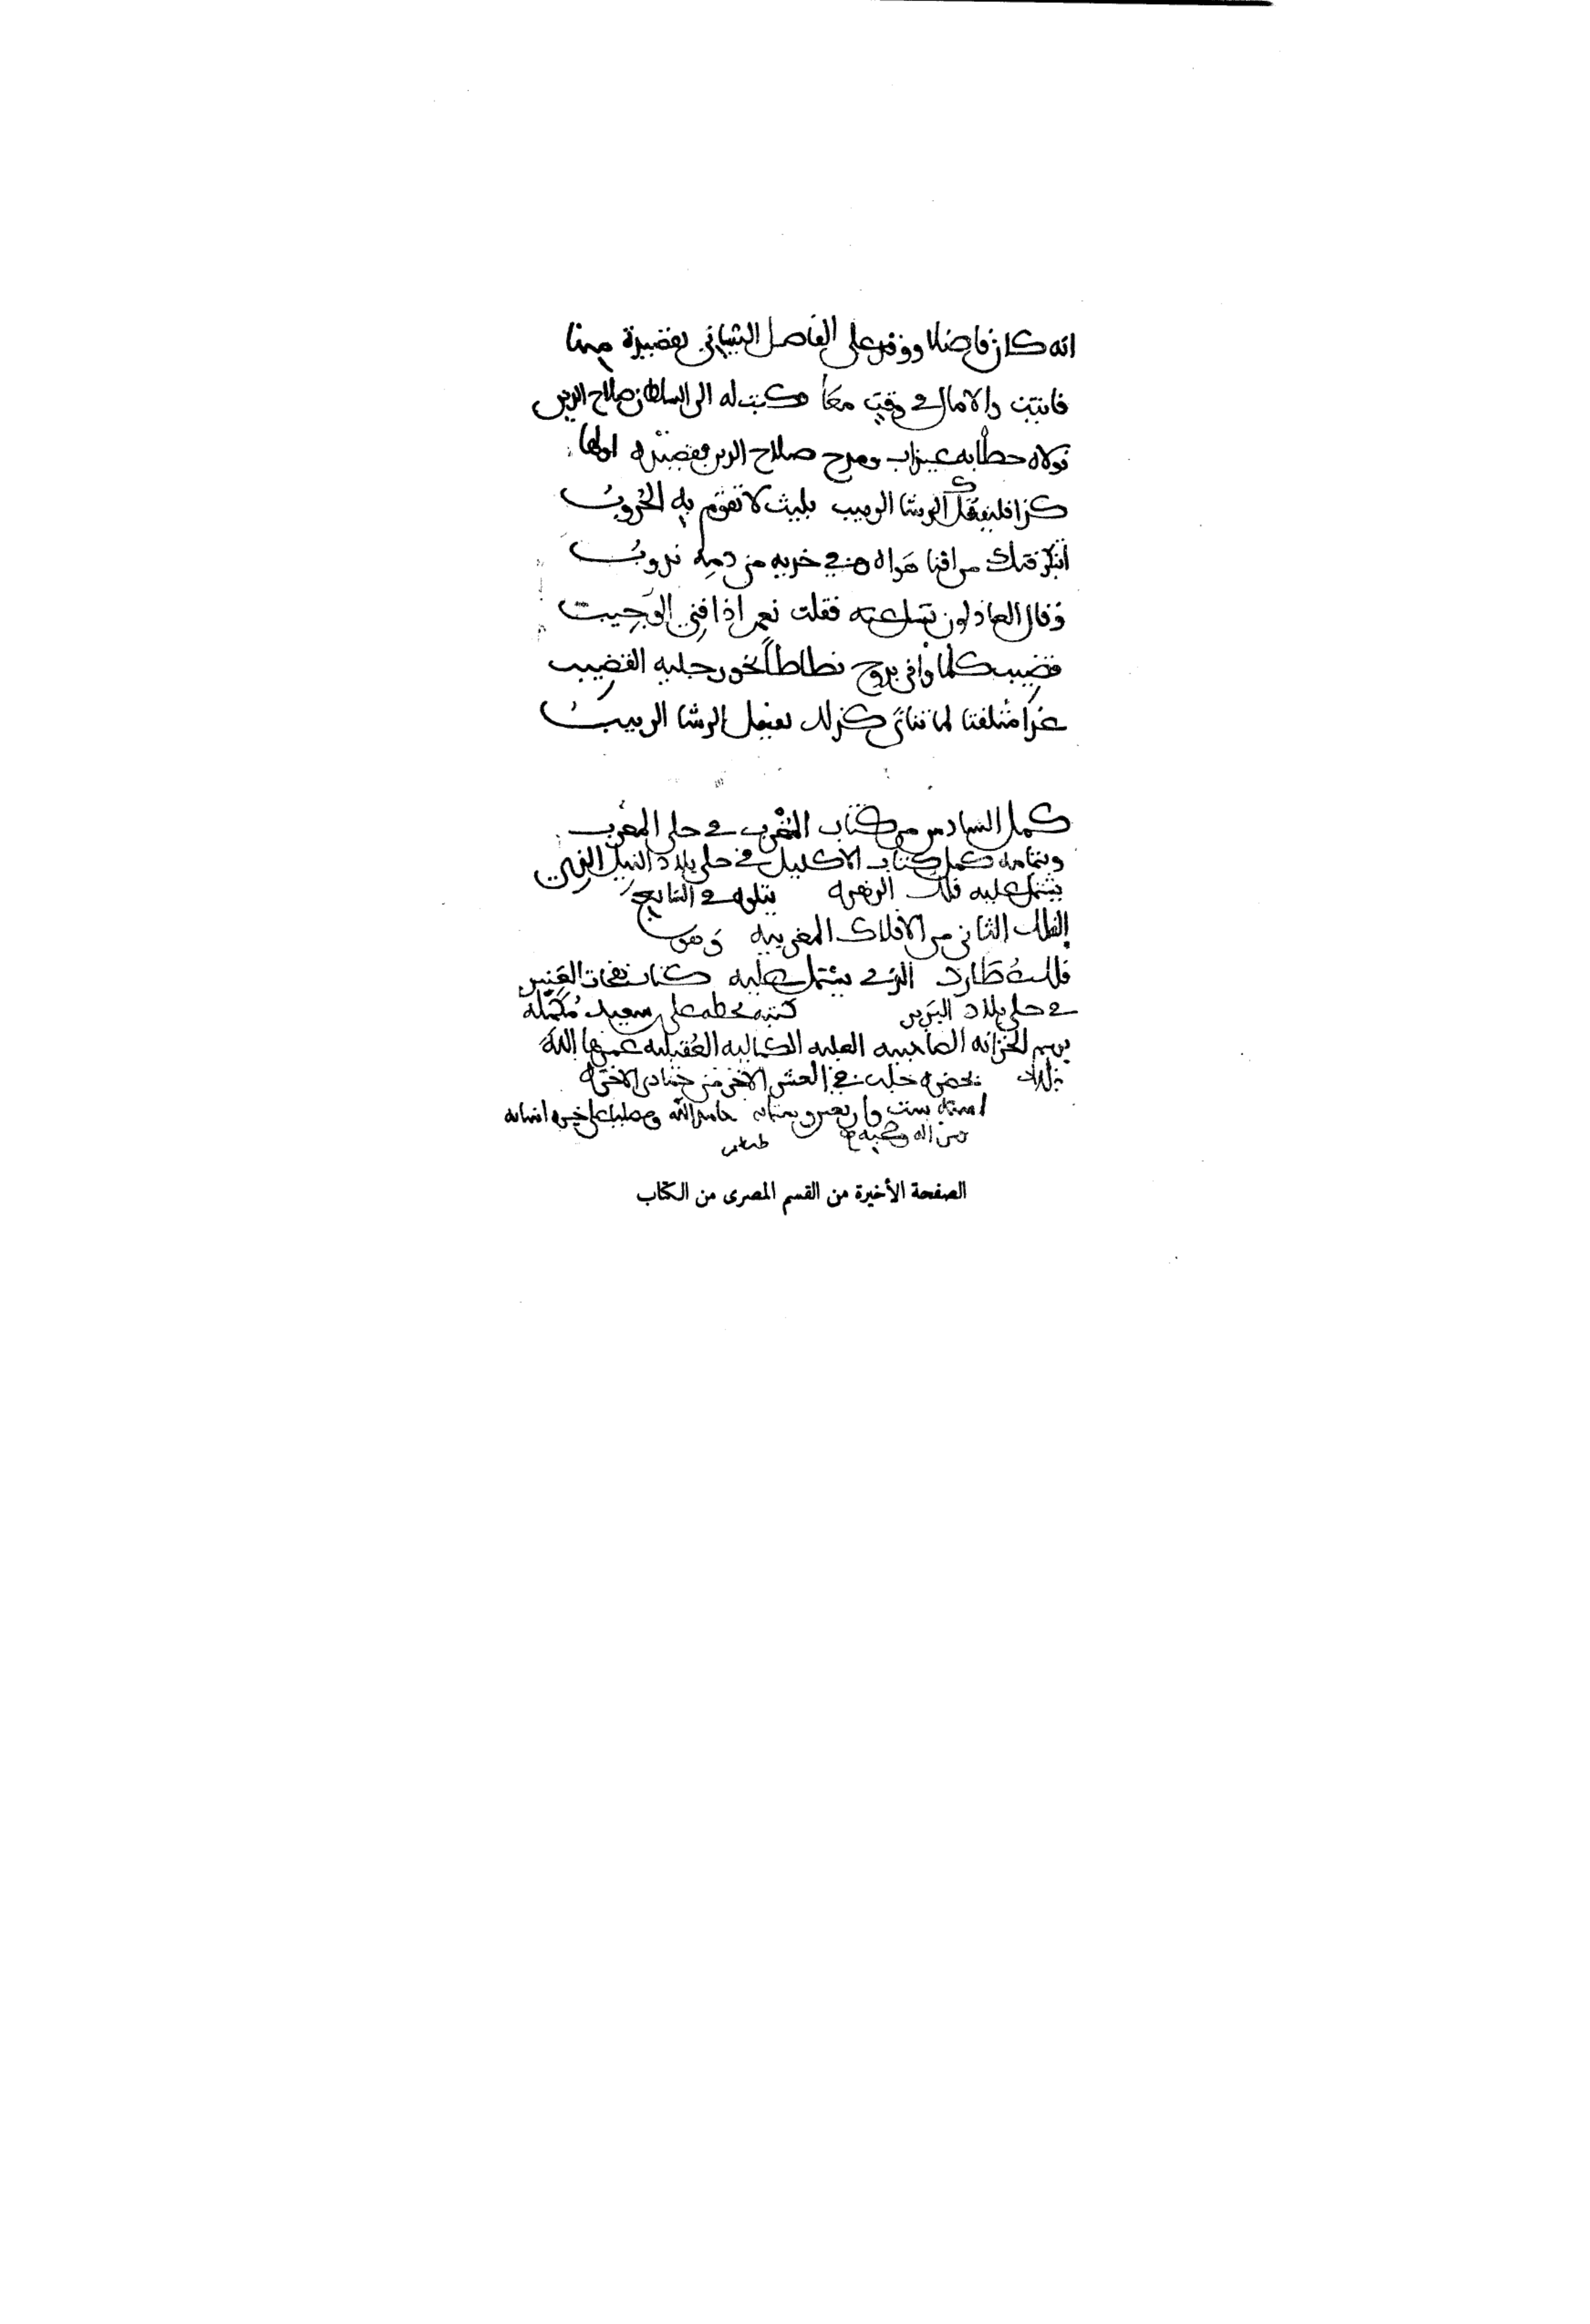 انه كان فاضلا ووفد على الفاضل البيساني بقصيدة منها
والامال في وقت معا وكتب له الى السلطان صلاح الدين
فولاه خطابة عيذاب ومدح صلاح الدين بقصيدة اولها
كذا فليفتك الرشا الربيب بليث لا تقوم به الحروب
من في خديه من دمه ندوب
وقال العاذلون تسل عنه فقلت نعم اذا فني الوجيب
قضيب كلما وافى بدوح تطاطا نحو رجليه القضيب
كذلك يفعل الرشا الربيب
كمل السادس من كتاب المغرب في حلى المغرب
وبتمامه كمل كتاب الاكليل في حلى بلاد النيل الذي
يشتمل عليه فلك الزهرة يتلوه في السابع
الفلك الثاني من الافلاك المغربية وهو
فلك عطارد الذي يشتمل عليه كتاب نفحات العنبر
في حلى بلاد البربر كتبه بخطه علي بن سعيد مكمله
برسم الخزانة الصاحبية العلية الكمالية العقيلية عمرها الله
بذلك بحضرة حلب في العشر الاخر من جمادى الاخرة
سنة ست واربعين وستمائة حامدا لله ومصليا على خيرة انبيائه
وعلى اله وصحبه
الصفحة الأخيرة من القسم المصرى من الكتاب